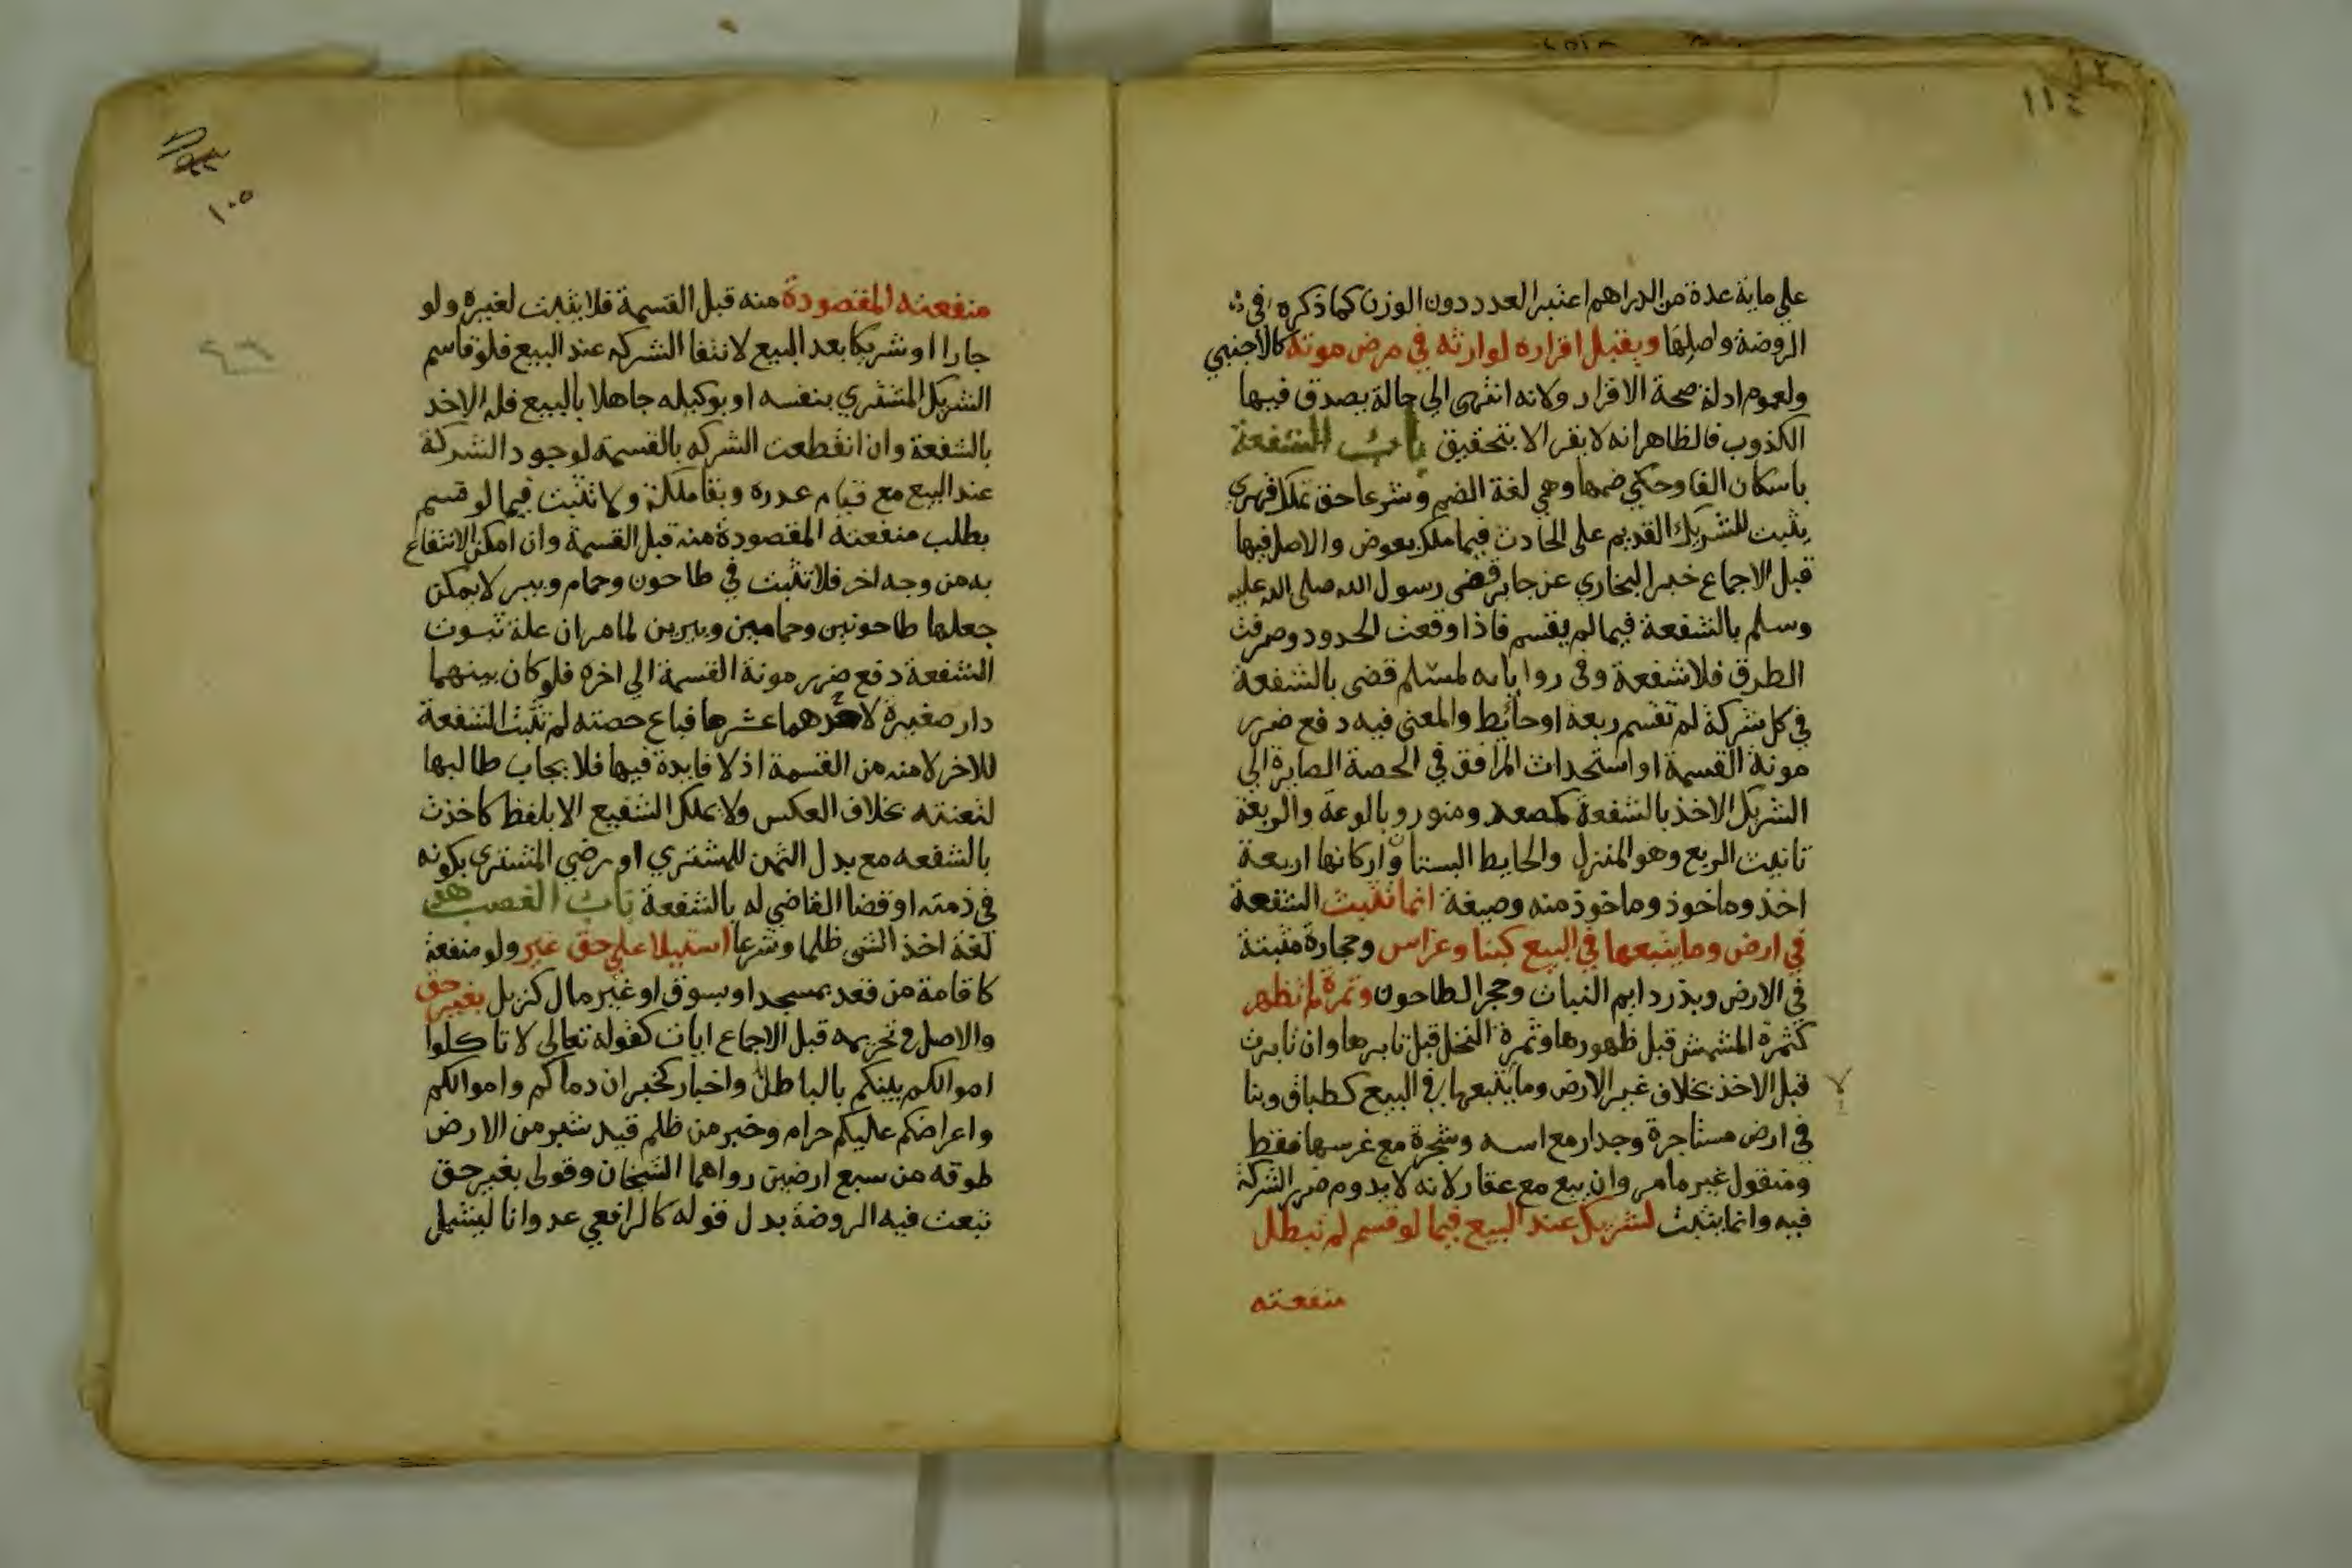 على ماية عدة من الدراهم اعتبر العدد دون الوزن كما ذكره في
الروضة واصلها ويقبل اقراره لوارثه في مرض موته كالاجنبي
ولعموم ادلة صحة الاقرار ولانه انتهى الى حالة يصدق فيها
الكذوب فالظاهر انه لا يقر الا بتحقيق باب الشفعة
باسكان الفا وحكي ضمها وهي لغة الضم وشرعا حق تملك قهري
يثبت للشريك القديم على الحادث فيما ملك بعوض والاصل فيها
قبل الاجماع خبر البخاري عن جابر قضى رسول الله صلى الله عليه
وسلم بالشفعة فيما لم يقسم فاذا وقعت الحدود وصرفت
الطرق فلا شفعة وفي رواياته لمسلم قضى بالشفعة
في كل شركة لم تقسم ربعة او حائط والمعنى فيه دفع ضرر
مونة القسمة او استحداث المرافق في الحصة الصايرة الي
الشريك الاخذ بالشفعة كمصعد ومنور وبالوعة والربعة
تانيث الربع وهو المنزل والحايط البستان واركانها اربعة
اخذ وماخوذ وماخوذ منه وصيغة انما تثبت الشفعة
في ارض وما يتبعها في البيع كبنا وغراس وحجارة مثبتة
في الارض وبذر دايم النبات وحجر الطاحون وثمرة لم تظهر
كثمرة المشمش قبل ظهورها وثمرة النخل قبل تابرها وان تابرت
قبل الاخذ بخلاف غير الارض وما يتبعها في البيع كطباق وبنا
في ارض مستاجرة وجدار مع اسه وشجرة مع غرسها فقط
ومنقول غير ما مر وان بيع مع عقار لانه لا يدوم ضرر الشركة
فيه وانما يثبت لشريك عند البيع فيما لو قسم لم تبطل
منفعته
١٠٥
منفعته المقصودة منه قبل القسمة فلا يثبت لغيره ولو
جارا او شريكا بعد البيع لانتفا الشركه عند البيع فلو قاسم
الشريك المشتري بنفسه او بوكيله جاهلا بالبيع فله الاخذ
بالشفعة وان انقطعت الشركه بالقسمة لوجود الشركة
عند البيع مع قيام عدره وبقا ملكه ولا تثبت فيما لو قسم
بطلب منفعته المقصودة منه قبل القسمة وان امكن الانتفاع
به من وجه اخر فلا تثبت في طاحون وحمام وبير لا يمكن
جعلها طاحونين وحمامين وبيرين لما مر ان علة ثبوت
الشفعة دفع ضرر مونة القسمة الي اخره فلو كان بينهما
دار صغيرة لاحدهما عشرها فباع حصته لم تثبت الشفعة
للاخر لامنه من القسمة اذ لا فايدة فيها فلا يجاب طالبها
لتعنته بخلاف العكس ولا يملك الشفيع الا بلفظ كاخذت
بالشفعه مع بدل الثمن للمشتري او رضي المشتري بكونه
في ذمته او قضا القاضي له بالشفعة باب الغصب هو
لغة اخذ الشي ظلما وشرعا استيلا علي حق غير ولو منفعة
كاقامة من قعد بمسجد او بسوق او غير مال كزبل بغير حق
والاصل في تحريمه قبل الاجماع ايات كقوله تعالى لا تاكلوا
اموالكم بينكم بالباطل واخبار كخبر ان دماكم واموالكم
واعراضكم عليكم حرام وخبر من ظلم قيد شبر من الارض
طوقه من سبع ارضين رواهما الشيخان وقولى بغير حق
تبعت فيه الروضة بدل قوله كالرافعي عدوانا ليشمل